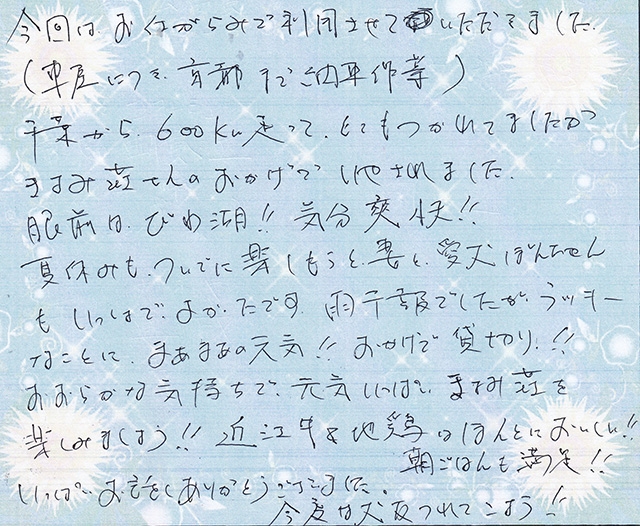 今回は、お仕事がらみで利用させていただきました。
(車屋につき、京都まで納車作業)
千葉から、600km走って、とてもつかれてましたが
ますみ荘さんのおかげで いやされました。
眼前は、びわ湖!! 気分爽快!!
夏休みも、ついでに楽しもうと、妻と、愛犬ぼんちゃん
も いっしょで、よかったです。雨予報でしたが、ラッキー
なことに、まあまあの天気!! おかげで 貸切り!!
おおらかな気持ちで、元気いっぱい、ますみ荘を
楽しみましょう!! 近江牛と地鶏はほんとにおいしい!!
朝ごはんも 満足!!
いっぱいお世話ありがとうございました。
今度は犬友つれてこよう!!